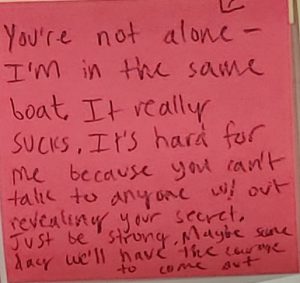 You're not alone -
I'm in the same
boat. It really
sucks. It's hard for
me because you can't
talk to anyone w/ out
revealing your secret.
Just be strong. Maybe some
day we'll have the courage
to come out